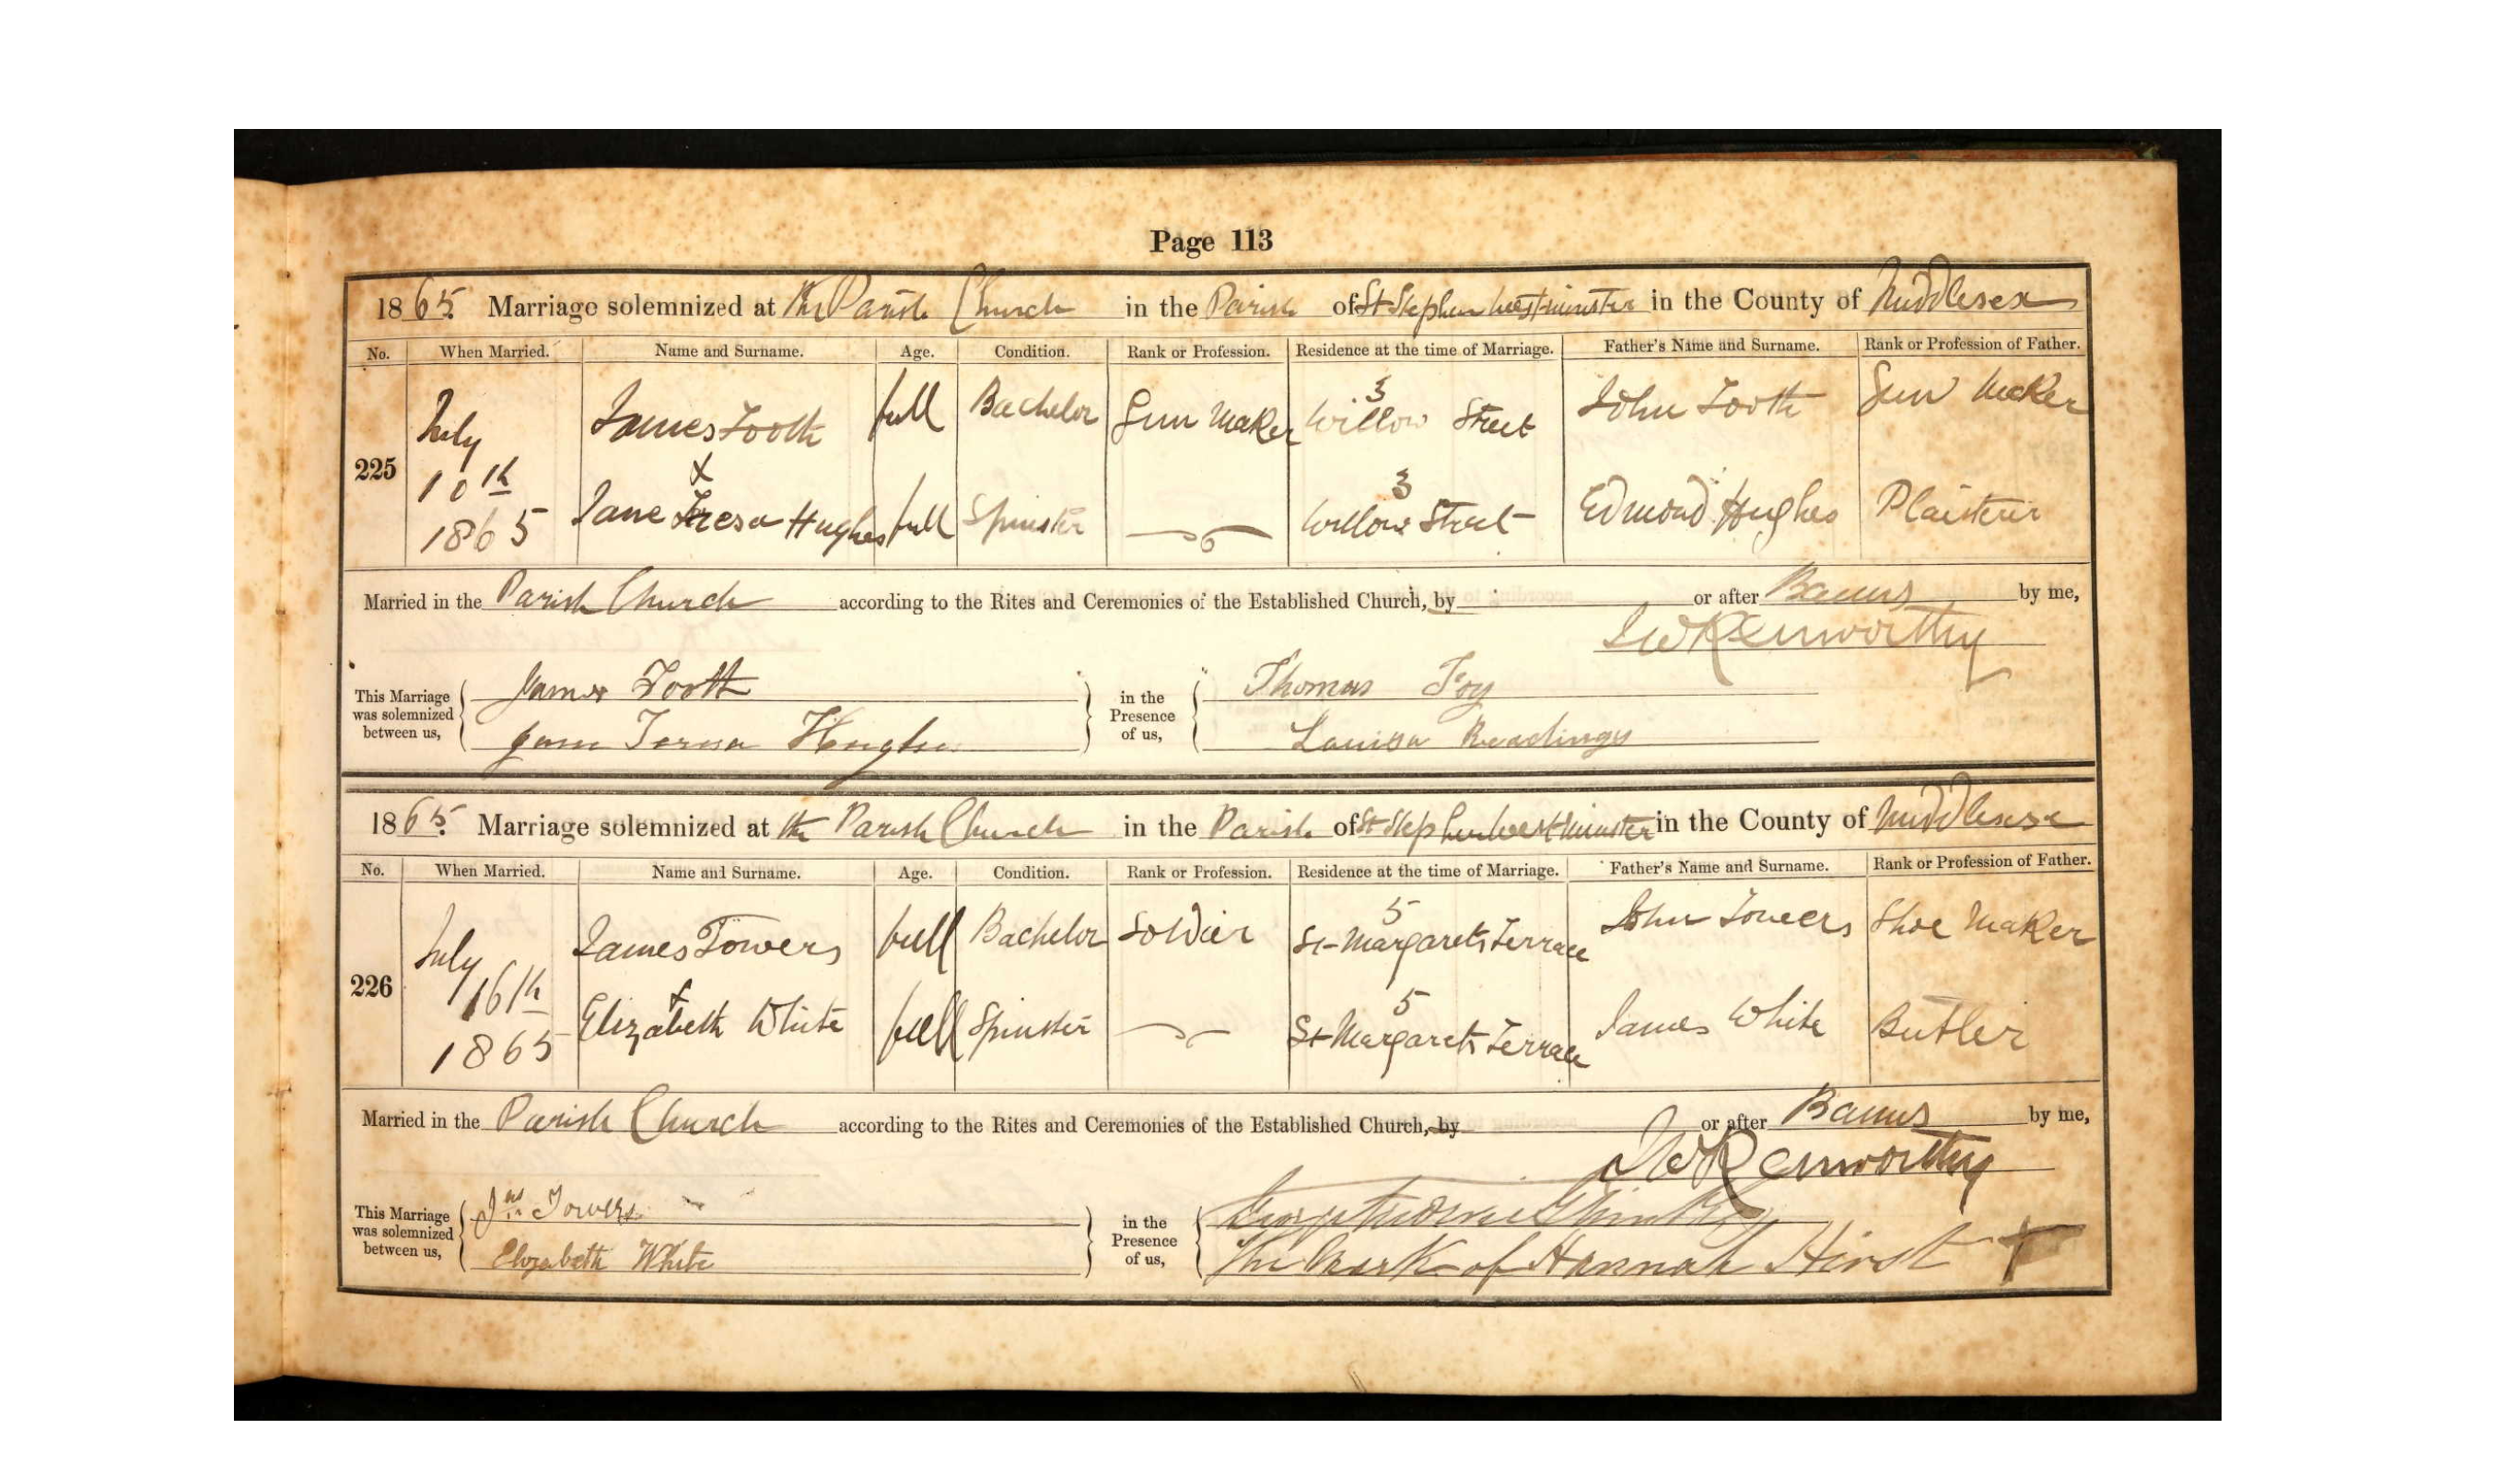 Page 113
1865. Marriage solemnized at the Parish Church in the Parish of St Stephen Westminster in the County of Middlesex
No. When Married. Name and Surname. Age. Condition. Rank or Profession. Residence at the time of Marriage. Father's Name and Surname. Rank or Profession of Father.
225 July 10th 1865
James Tooth full Bachelor Gun Maker 3 Willow Street John Tooth Gun Maker
X
Jane Tresa Hughes full Spinster 3 Willow Street Edmond Hughes Plaisterer
Married in the Parish Church according to the Rites and Ceremonies of the Established Church, by or after Banns by me,
JW Kenworthy
This Marriage was solemnized between us, James Tooth in the Presence of us, Thomas Foy
Jane Teresa Hughes Louisa Readings
1865. Marriage solemnized at the Parish Church in the Parish of St Stephen Westminster in the County of Middlesex
No. When Married. Name and Surname. Age. Condition. Rank or Profession. Residence at the time of Marriage. Father's Name and Surname. Rank or Profession of Father.
226 July 16th 1865
James Towers full Bachelor Soldier 5 St Margarets Terrace John Towers Shoe Maker
X
Elizabeth White full Spinster 5 St Margarets Terrace James White Butler
Married in the Parish Church according to the Rites and Ceremonies of the Established Church, by or after Banns by me,
JW Kenworthy
This Marriage was solemnized between us, Jas Towers in the Presence of us,
Elizabeth White The Mark of Hannah Hirst X